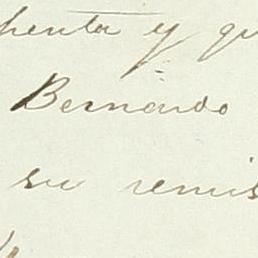 henta y qu
Bernardo
su remis